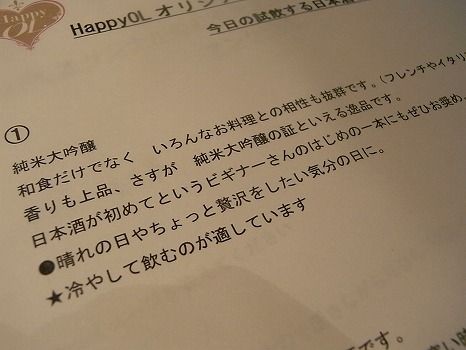 Happy
OL
HappyOL オリジナ
今日の試飲する日本酒
①
純米大吟醸
和食だけでなく いろんなお料理との相性も抜群です。(フレンチやイタリ
香りも上品、さすが 純米大吟醸の証といえる逸品です。
日本酒が初めてというビギナーさんのはじめの一本にもぜひお奨め。
●晴れの日やちょっと贅沢をしたい気分の日に。
★冷やして飲むのが適しています
です。